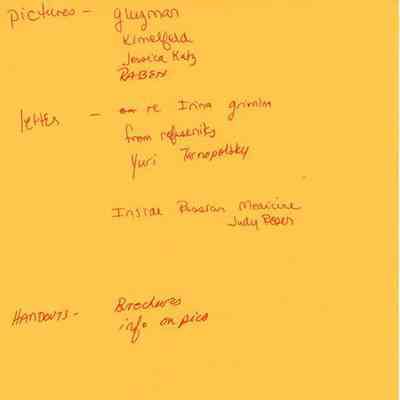 pictures - gluzman
Kimelfeld
Jessica Katz
RABEN
letter - re Irina grimm
from refuseniks
Yuri Tarnopolsky
Inside Russian Medicine
Judy
HANDOUTS - Brochures
info on pics